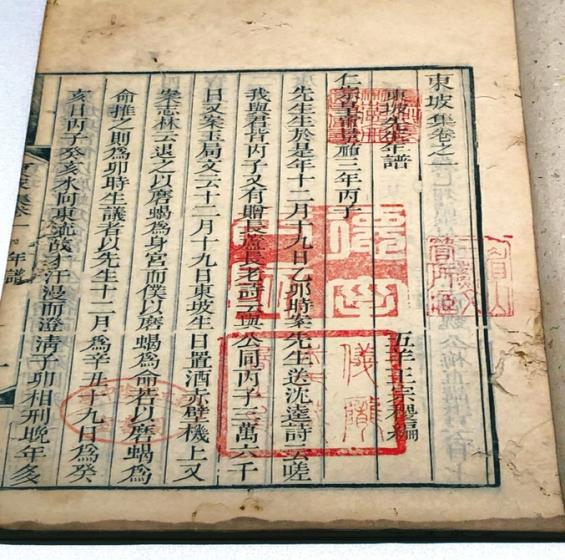 東坡集卷之一
東坡先生年譜
五羊王宗稷編
仁宗皇帝景祐三年丙子
先生生於是年十二月十九日乙卯時案先生送沈逵詩云嗟
我與君皆丙子又有贈長蘆長老詩云與公同丙子三萬六千
日又案玉局文云十二月十九日東坡生日置酒赤壁機上又
案志林云退之以磨蝎爲身宮而僕以磨蝎爲命若以磨蝎爲
命推之則爲卯時生議者以先生十二月爲辛丑十九日爲癸
亥日丙子癸亥水向東流故才汗漫而澄清子卯相刑晚年多
年譜